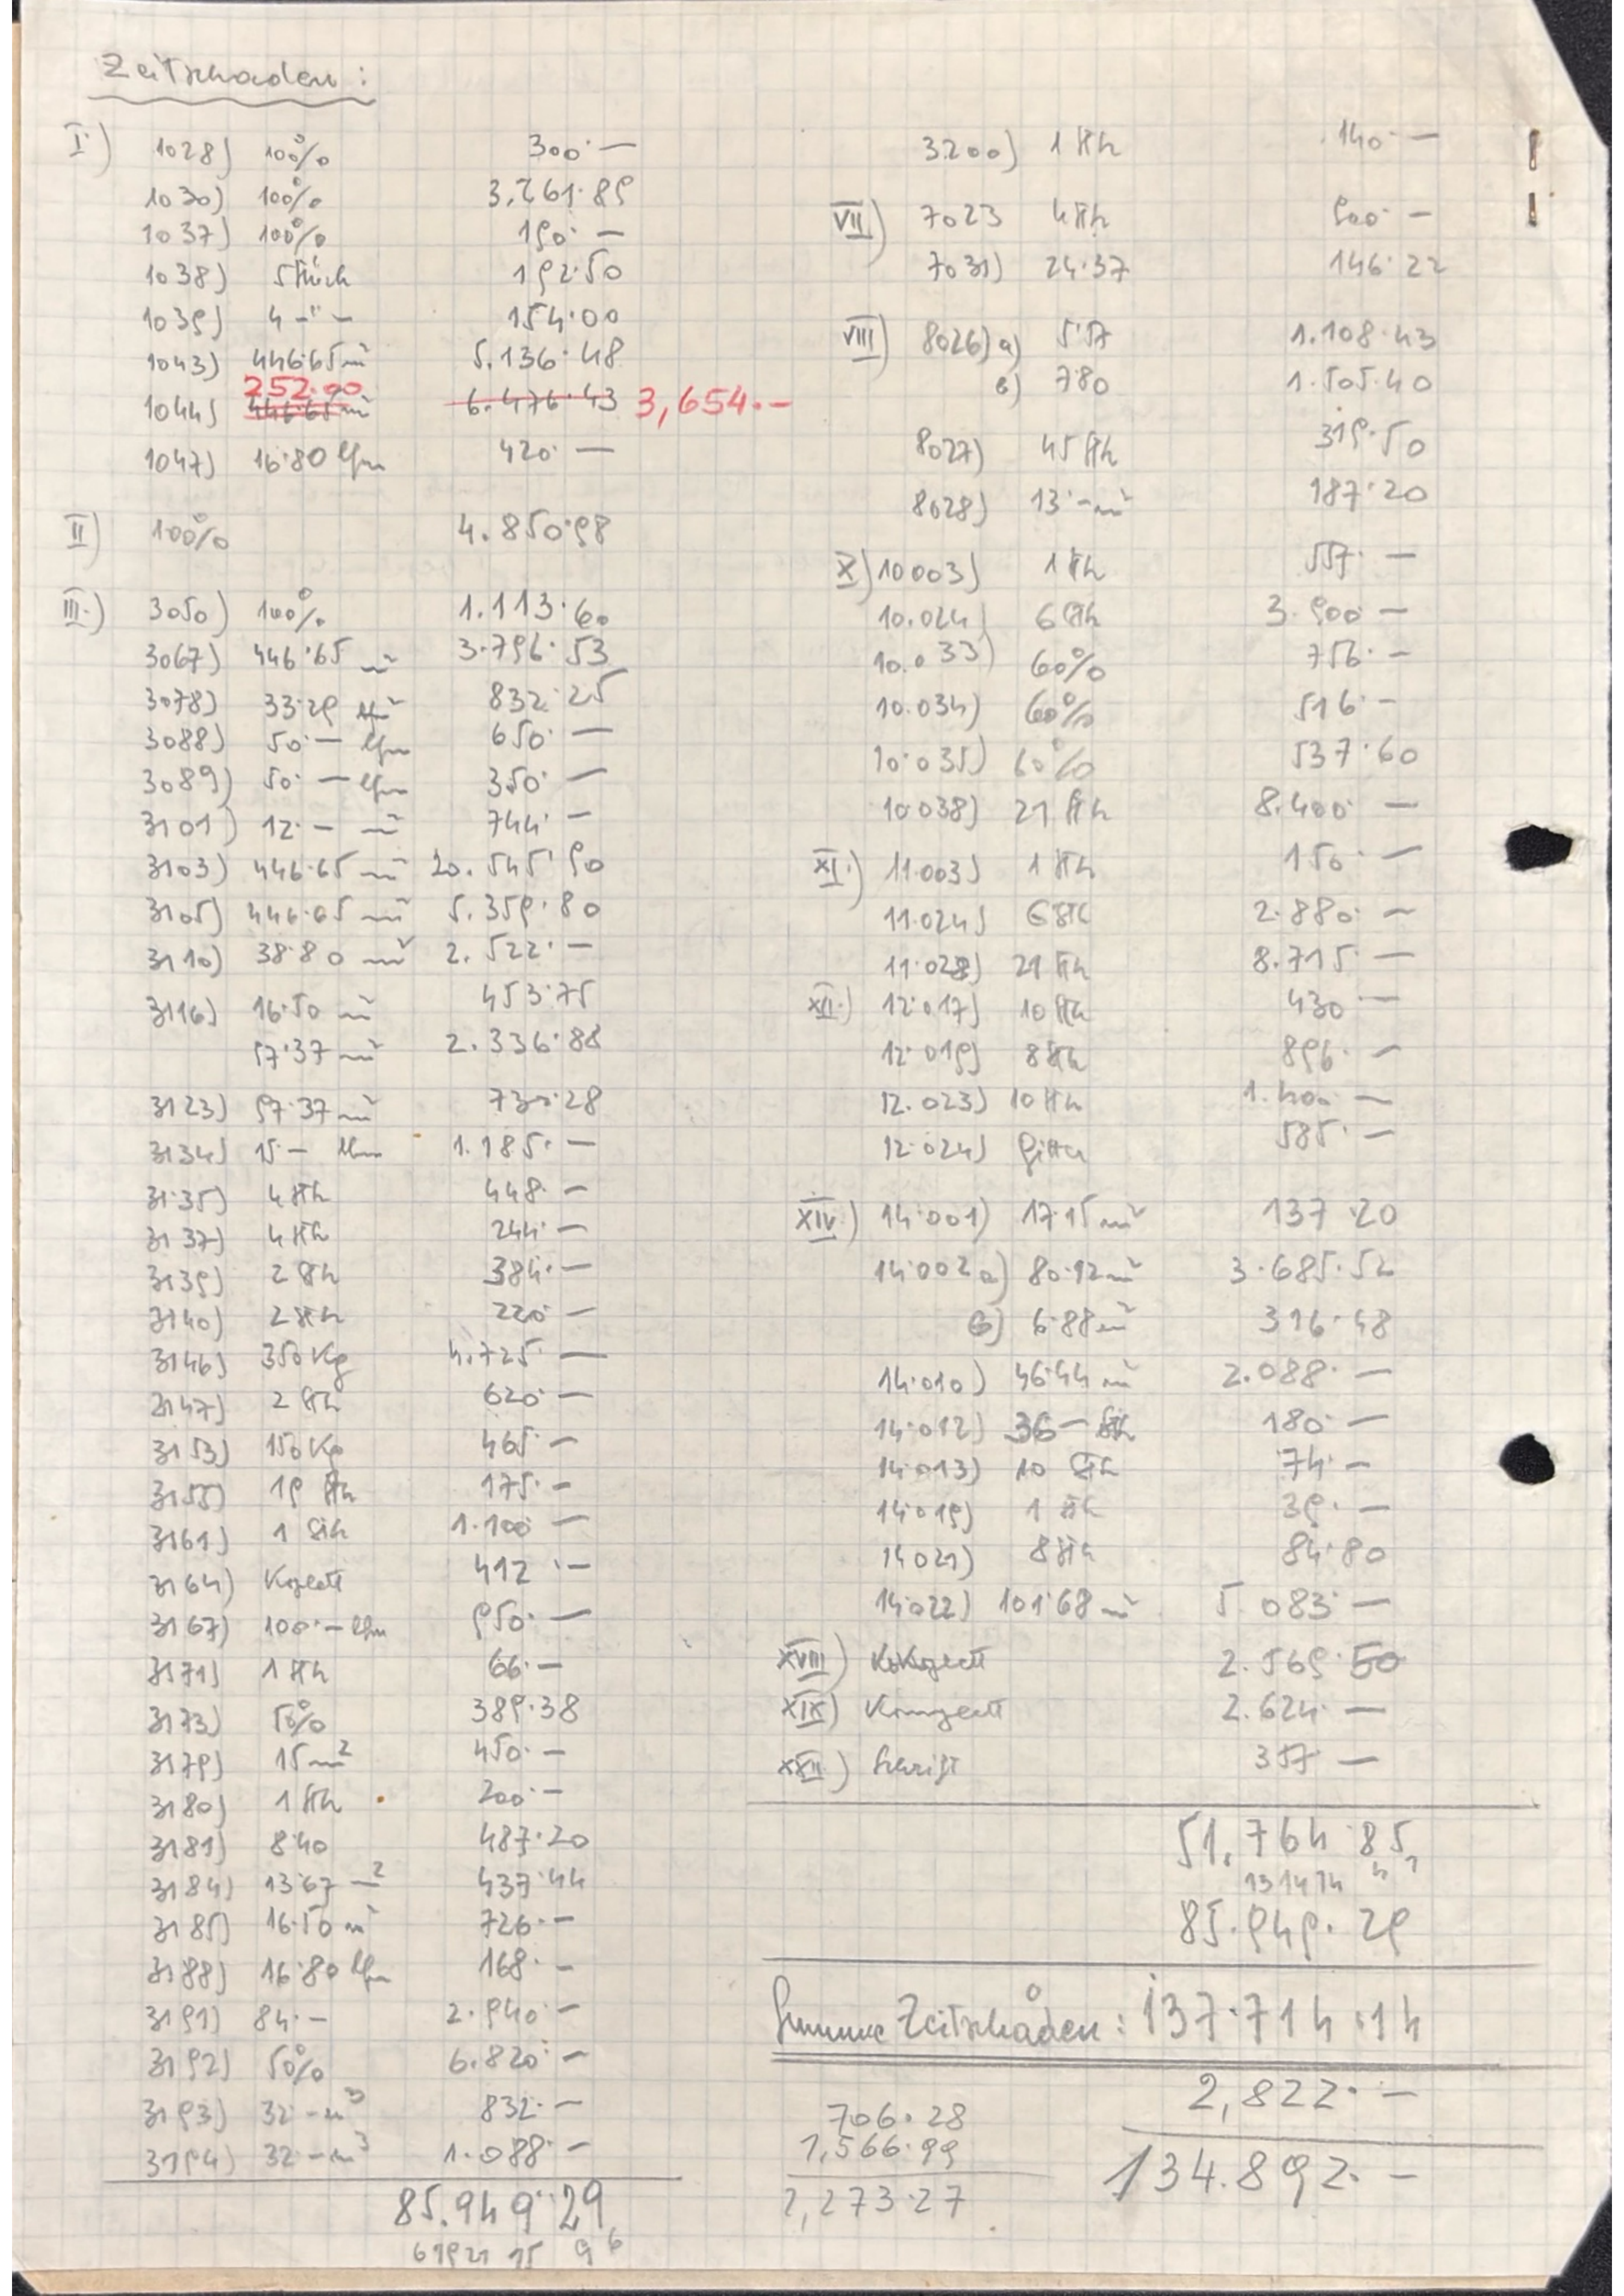 Zeitschaden:
I.) 1028) 100% 300·—
1030) 100% 3.261·89
1037) 100% 190·—
1038) 5 Stück 192·50
1039) 4 -"- 154·00
1043) 446·65 m² 5.136·48
252·00
1044) 446·65 m² 6.476·43 3,654·-
1047) 16·80 lfm 420·—
II) 100% 4.850·98
III.) 3050) 100% 1.113·60
3067) 446·65 m² 3.796·53
3078) 33·29 m² 832·25
3088) 50·— lfm 650·—
3089) 50·— lfm 350·—
3101) 12·— m² 744·—
3103) 446·65 m² 20.545·90
3105) 446·65 m² 5.359·80
3110) 38·80 m² 2.522·—
3116) 16·50 m² 453·75
57·37 m² 2.336·88
3123) 97·37 m² 730·28
3134) 15·— lfm 1.185·—
3135) 4 Stk 448·—
3137) 4 Stk 244·—
3139) 2 Stk 384·—
3140) 2 Stk 220·—
3146) 350 Kg 4.725·—
3147) 2 Stk 620·—
3153) 150 Kg 465·—
3155) 19 Stk 175·—
3161) 1 Stk 1.100·—
3164) 412·—
3167) 100·— lfm 950·—
3171) 1 Stk 66·—
3173) 50% 389·38
3179) 15 m² 450·—
3180) 1 Stk 200·—
3181) 8·40 487·20
3184) 13·67 m² 437·44
3185) 16·50 m² 726·—
3188) 16·80 lfm 168·—
3191) 84·— 2.940·—
3192) 50% 6.820·—
3193) 32·— m³ 832·—
3194) 32·— m³ 1.088·—
85.949·29
3200) 1 Stk 140·—
VII) 7023 4 Stk 900·—
7031) 24·37 146·22
VIII) 8026) a) 5·57 1.108·43
b) 7·80 1.505·40
8027) 45 Stk 319·50
8028) 13·— m² 187·20
X) 10003) 1 Stk 557·—
10.024) 6 Stk 3.900·—
10.033) 60% 756·—
10.034) 60% 516·—
10.035) 60% 537·60
10.038) 21 Stk 8.400·—
XI.) 11.003) 1 Stk 150·—
11.024) 6 Stk 2.880·—
11.028) 21 Stk 8.715·—
XII.) 12.017) 10 Stk 430·—
12.019) 8 Stk 896·—
12.023) 10 Stk 1.400·—
12.024) Gitter 585·—
XIV) 14.001) 17·15 m² 137·20
14.002 a) 80·12 m² 3.685·52
b) 6·88 m² 316·48
14.010) 46·44 m² 2.088·—
14.012) 36·— Stk 180·—
14.013) 10 Stk 74·—
14.019) 1 Stk 39·—
14021) 8 Stk 84·80
14.022) 101·68 m² 5.083·—
XVIII) 2.569·50
XIX) 2.624·—
XXII) Schrift 357·—
51.764·85
85.949·29
Summe Zeitschaden: 137·714·14
2,822·—
134.892·—
706·28
1,566·99
2,273·27